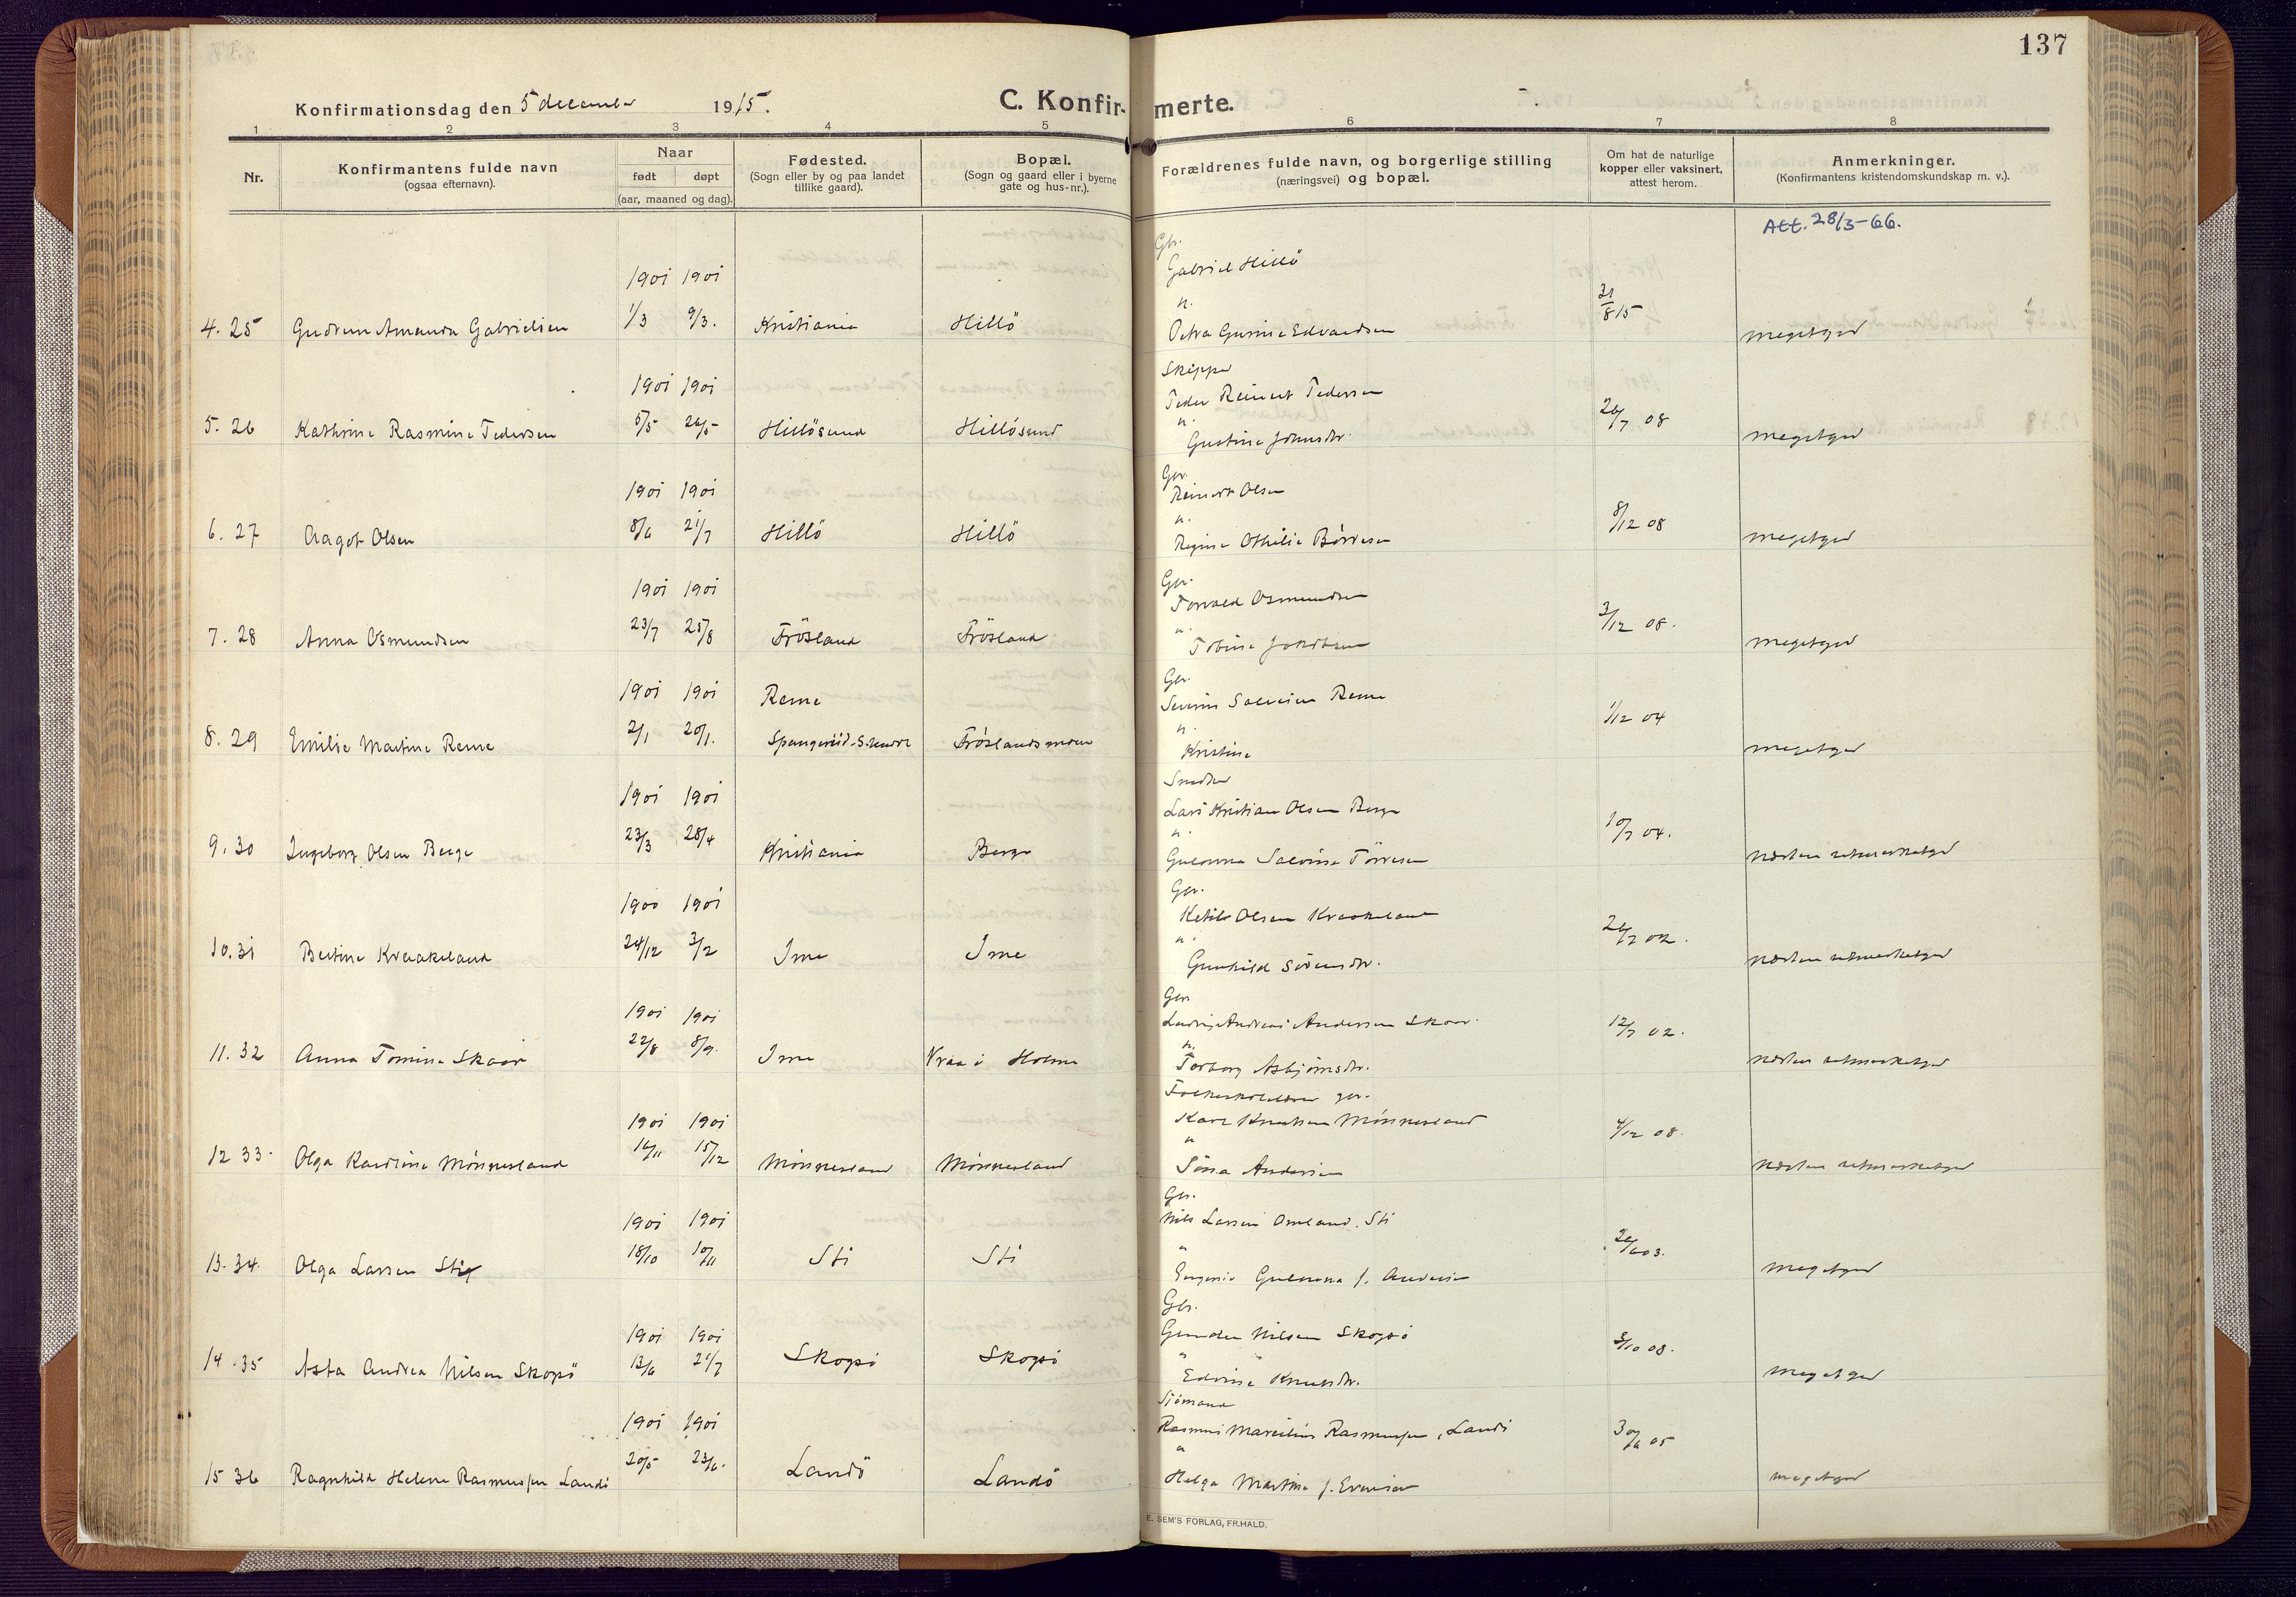 137
Konfirmationsdag den 5 december 1915.
C. Konfirmerte.
1 2 3 4 5 6 7 8
Nr.
Konfirmantens fulde navn
(ogsaa efternavn).
Naar
født døpt
(aar, maaned og dag).
Fødested.
(Sogn eller by og paa landet
tillike gaard).
Bopæl.
(Sogn og gaard eller i byerne
gate og hus-nr.).
Forældrenes fulde navn, og borgerlige stilling
(næringsvei) og bopæl.
Om hat de naturlige
kopper eller vaksinert,
attest herom.
Anmerkninger.
(Konfirmantens kristendomskundskap m. v.).
Att. 28/3-66.
Gbr.
1901 1901 Gabriel Hillö
4. 25 Gudrun Amanda Gabrielsen 1/3 9/3. Kristiania Hillö 31/8 15 megetgod
Skipper
1901 1901 Peder Reinert Pedersen
5. 26 Kathrine Rasmine Pedersen 5/5 26/5 Hillösund Hillösund 26/7 08 megetgod
Gustine Johnsdtr.
Gbr.
1901 1901 Reinert Olsen
6. 27 Aagot Olsen 8/6 21/7 Hillö Hillö 8/12 08 megetgod
Regine Othilie Börresen
Gbr.
1901 1901 Torvald Osmundsen
7. 28 Anna Osmundsen 23/7 25/8 Frösland Frösland 3/12 08. megetgod
Tobine Jakobsen
Gbr.
1901 1901 Reme Severin Salvesen Reme
8. 29 Emilie Martine Reme 2/1 20/1. Fröslandsmoen 1/12 04 megetgod
Kristine
Snedker
1901 1901 Lars Kristian Olsen Berge
9. 30 Ingeborg Olsen Berge 23/3 28/4 Kristiania Berge 10/7 04. næsten utmerketgod
Gulouna Salvine Törresen
Gbr.
1900 1901 Ketil Olsen Kraakeland
10. 31 Bertine Kraakeland 24/12 3/2 Ime Ime 26/7 02. næsten utmerketgod
Gunhild Sörensdtr.
Gbr
1901 1901 Ludvig Andreas Andersen Skaar.
11. 32 Anna Tomine Skaar 22/8 8/9. Ime Vraa i Holme 12/7 02. næsten utmerketgod
Torborg Asbjörnsdtr.
Folkeskolelærer gbr.
1901 1901 Karl Knutsen Mönnesland
12 33. Olga Karoline Mönnesland 16/11 15/12 Mönnesland Mönnesland 4/12 08. næsten utmerketgod
Andersen
Gbr.
1901 1901 Nils Larsen Omland. Sti
13. 34. Olga Larsen Sti 18/10 10/11 Sti Sti megetgod
Gulouna f. Andersen
Gbr.
1901 1901 Gunder Nilsen Skogsö
14. 35 Asta Andrea Nilsen Skogsö 13/6 21/7 Skogsö Skogsö 3/10 08. megetgod
Edvine Knutsdtr.
Sjömand
1901 1901 Rasmus Marcelius Rasmussen, Landö
15 36 Ragnhild Helene Rasmussen Landö 20/5 23/6. Landö Landö 30/6 05 megetgod
Helga Martine f. Evensen
E. SEM'S FORLAG, FR.HALD.